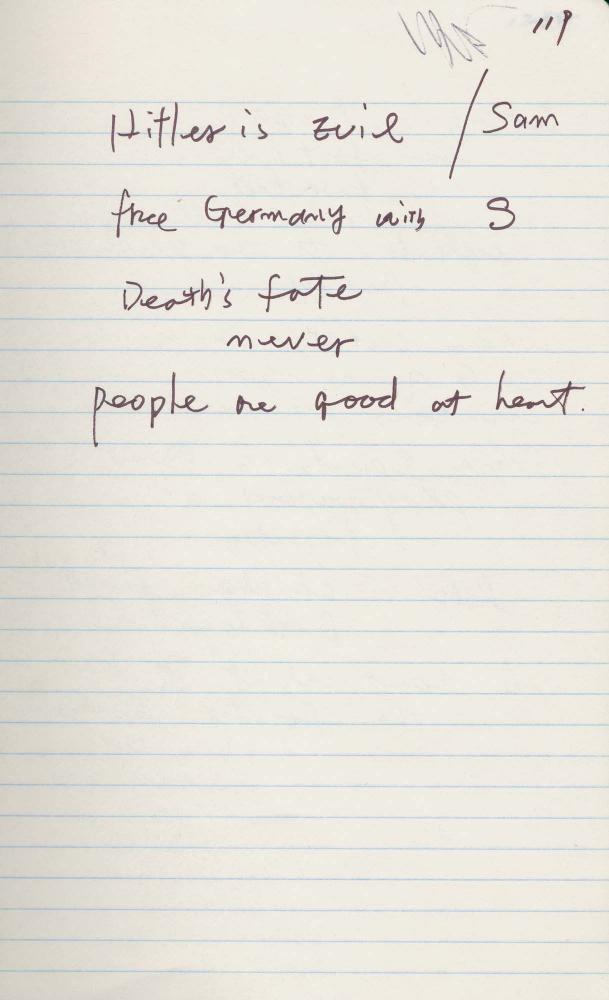 119
Hitler is Evil / Sam
free Germany with S
Death's fate
never
people are good at heart.